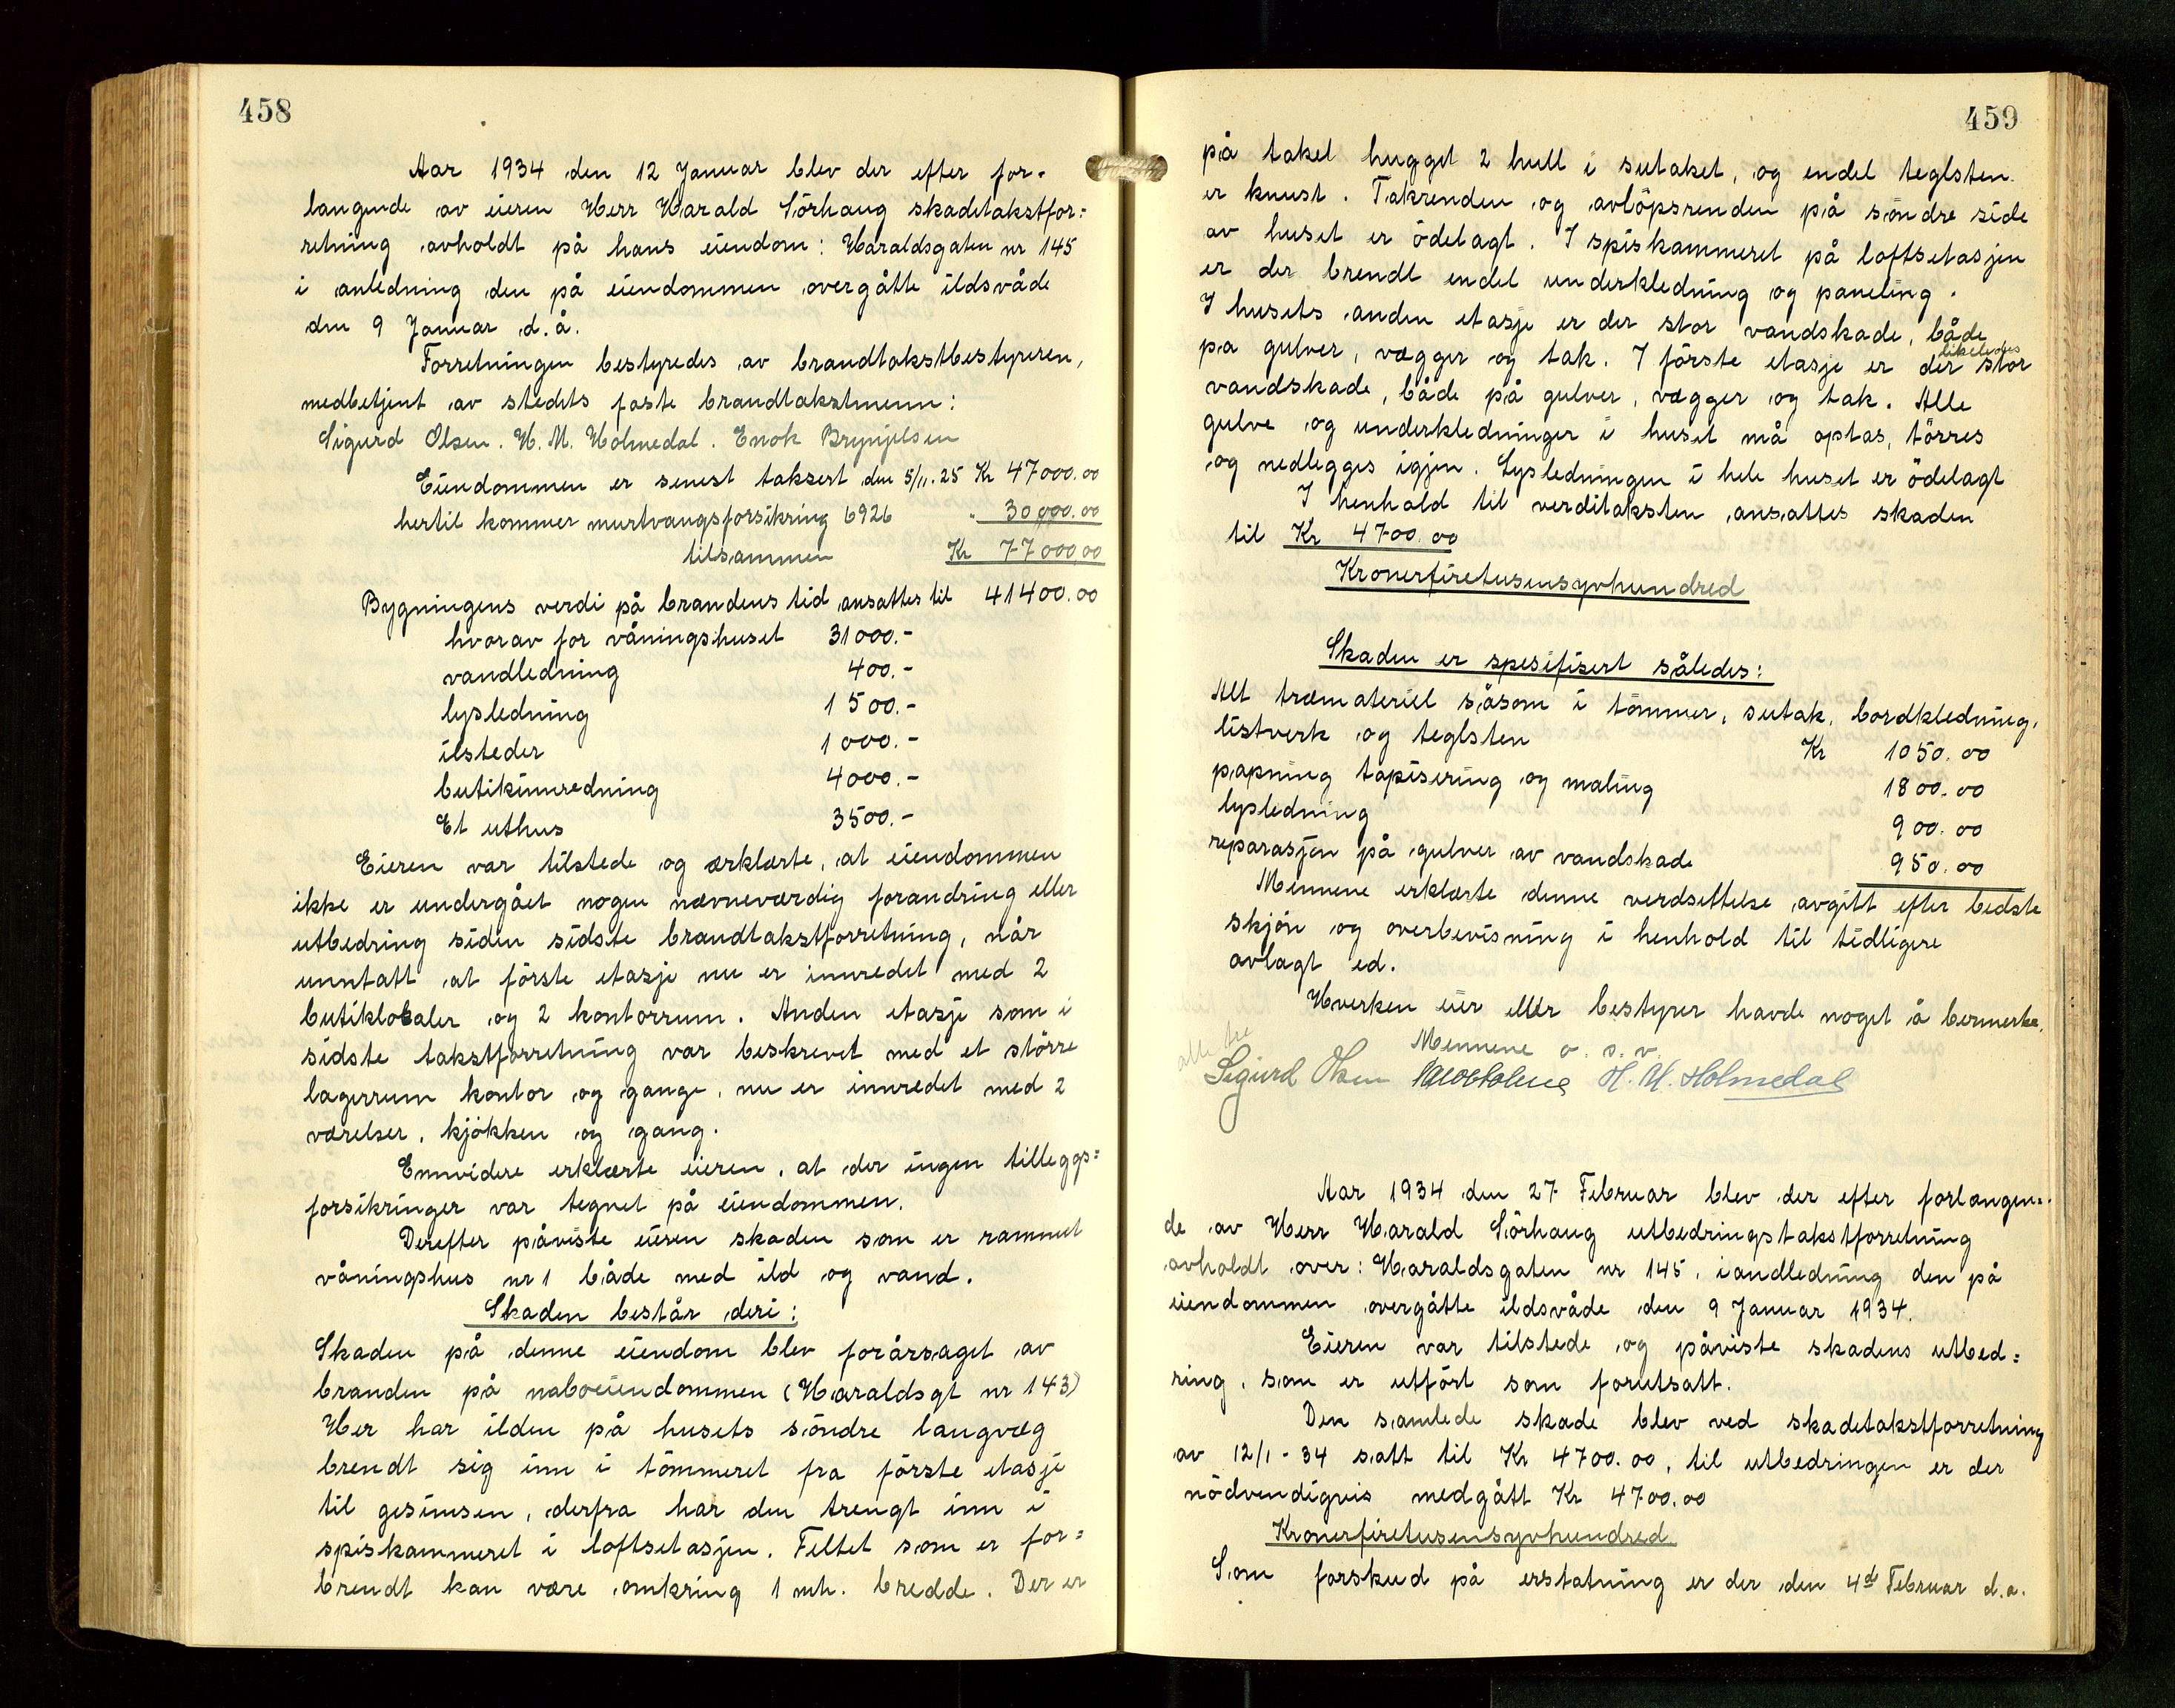 458
Aar 1934 den 12 Januar blev der efter for=
langende av eieren Herr Harald Sörhaug skadetakstfor=
retning avholdt på hans eiendom: Haraldsgaten nr 145
i anledning den på eiendommen overgåtte ildsvåde
den 9 Januar d.å.
Forretningen bestyredes av brandtakstbestyreren,
medbetjent av stedets faste brandtakstmenn:
Sigurd Olsen. H. M. Holmedal. Enok Brynjelsen
Eiendommen er senest taksert den 5/11.25 Kr 47000.00
hertil kommer murtvangsforsikring 6926 " 30000.00
tilsammen Kr 77000,00
Bygningens verdi på brandens tid ansattes til 41400.00
hvorav for våningshuset 31000.-
vandledning 400.-
lysledning 1500.-
ilsteder 1000.-
butikinnredning 4000.-
Et uthus 3500.-
Eieren var tilstede og ærklærte, at eiendommen
ikke er undergået nogen nævneværdig forandring eller
utbedring siden sidste brandtakstforretning, når
unntatt at förste etasje nu er innredet med 2
butiklokaler og 2 kontorrum. Anden etasje som i
sidste takstforretning var beskrevet med et större
lagerrum kontor og gange, nu er innredet med 2
værelser, kjökken og gang.
Ennvidere erklærte eieren, at der ingen tilleggs=
forsikringer var tegnet på eiendommen.
Derefter påviste eieren skaden som er rammet
våningshus nr 1 både med ild og vand.
Skaden består deri:
Skaden på denne eiendom blev forårsaget av
branden på naboeiendommen (Haraldsgt nr 143)
Her har ilden på husets söndre langvæg
brendt sig inn i tömmeret fra förste etasje
til gesimsen, derfra har den trengt inn i
spiskammeret i loftsetasjen. Feltet som er for=
brendt kan være omkring 1 mtr. bredde. Der er
459
på taket hugget 2 hull i sutaket, og endel teglsten
er knust. Takrenden og avlöpsrenden på söndre side
av huset er ödelagt. I spiskammeret på loftsetasjen
er der brendt endel underkledning og paneling.
I husets anden etasje er der stor vandskade, både
på gulver, vægger og tak. I förste etasje er der likeledes stor
vandskade, både på gulver, vægger og tak. Alle
gulve og underkledninger i huset må optas, törres
og nedlegges igjen. Lysledningen i hele huset er ödelagt
I henhold til verditaksten ansattes skaden
til Kr 4700.00
Kronerfiretusensyvhundred
Skaden er spesifisert således:
Alt træmateriel såsom i tömmer, sutak, bordkledning,
listverk og teglsten Kr 1050.00
papning tapisering og maling 1800.00
lysledning 900.00
reparasjon på gulver av vandskade 950.00
Mennene erklærte denne verdsettelse avgitt efter bedste
skjön og overbevisning i henhold til tidligere
avlagt ed.
Hverken eier eller bestyrer havde noget å bemerke.
Mennene o. s. v.
alle tre
Sigurd Olsen H. M. Holmedal
Aar 1934 den 27 Februar blev der efter forlangen=
de av Herr Harald Sörhaug utbedringstakstforretning
avholdt over: Haraldsgaten nr 145, iandledning den på
eiendommen overgåtte ildsvåde den 9 Januar 1934.
Eieren var tilstede og påviste skadens utbed=
ring, som er utfört som forutsatt.
Den samlede skade blev ved skadetakstforretning
av 12/1-34 satt til Kr 4700.00, til utbedringen er der
nödvendigvis medgått Kr 4700.00
Kronerfiretusensyvhundred
Som forskud på erstatning er der den 4de Februar d.a.